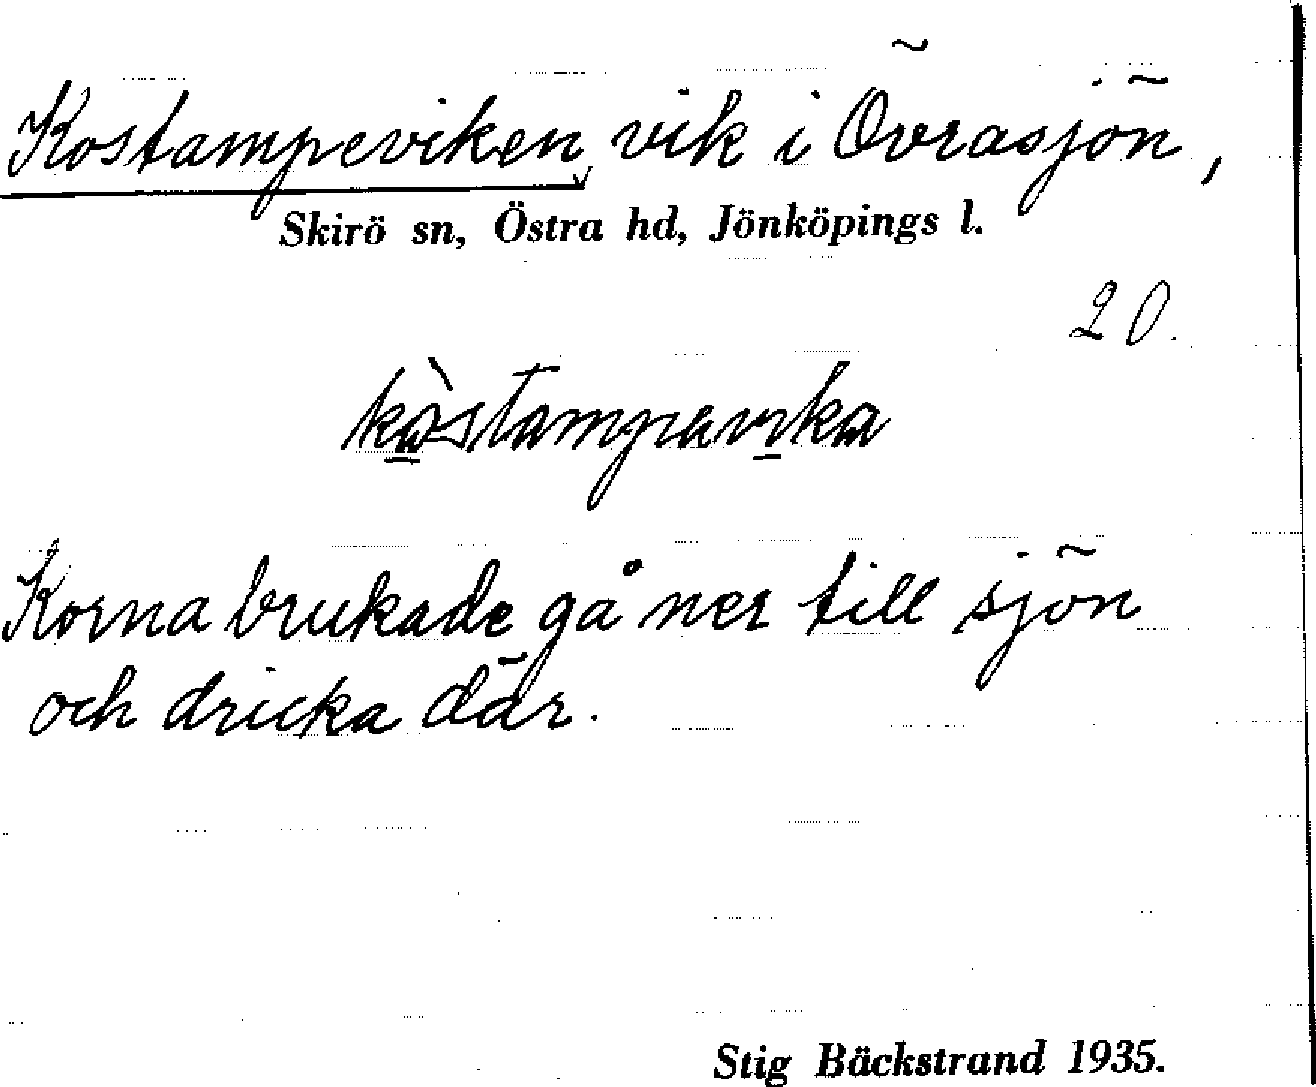 Kostampeviken, vik i Övrasjön,
Skirö sn, Östra hd, Jönköpings l.
20.
Korna brukade gå ner till sjön
och dricka där.
Stig Bäckstrand 1935.